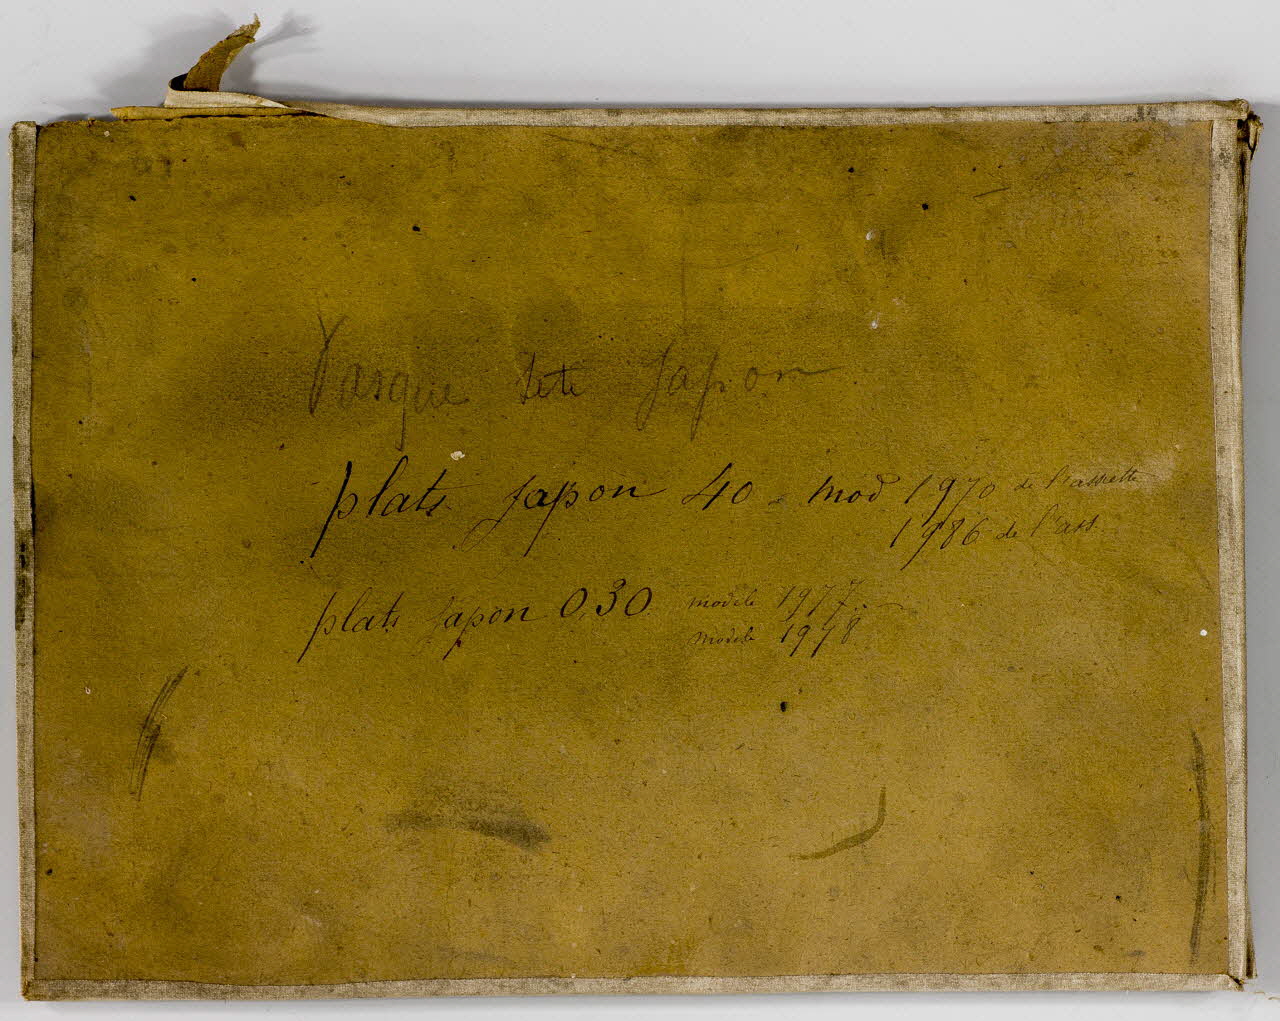 Vasque tete Japon
plats Japon 40 - mod 1970 de l'assiette
1986 de l'ass.
plats Japon 0,30 modele 1977
modele 1978